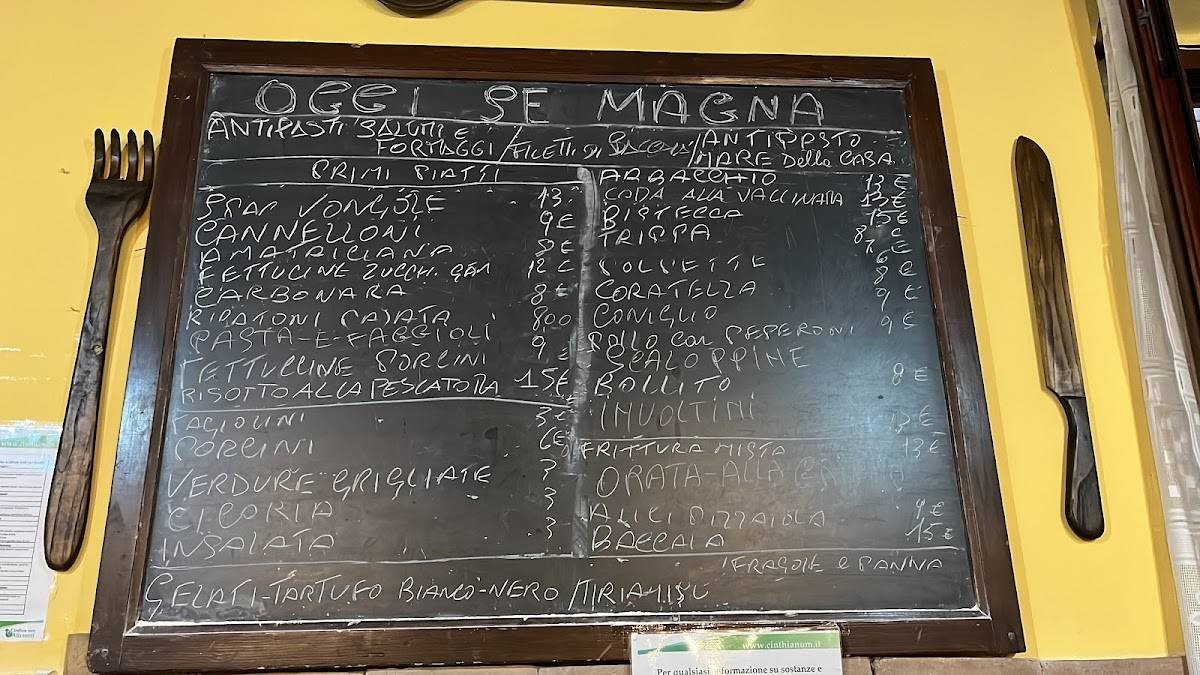 OGGI SE MAGNA
ANTIPASTI SALUMI E
FORMAGGI / FILETTI DI / ANTIPASTO
MARE DELLA CASA
PRIMI PIATTI
VONGOLE 13
CANNELLONI 9€
AMATRICIANA 8€
FETTUCINE ZUCCH. 12€
CARBONARA 8€
RIGATONI 800
PASTA-E-FAGGIOLI 9€
FETTUCCINE PORCINI
RISOTTO ALLA PESCATORA 15€
FAGIOLINI 3€
PORCINI 6€
VERDURE GRIGLIATE 3
CICORIA 3
INSALATA 3
ABBACCHIO 13€
CODA ALLA VACCINARA 13€
BISTECCA 15€
TRIPPA 8€
POLPETTE
CORATELLA
CONIGLIO 9€
POLLO CON PEPERONI 9€
SCALOPPINE
BOLLITO 8€
INVOLTINI
FRITTURA MISTA 13€
ORATA-ALLA
ALICI PIZZAIOLA 9€
BACCALA 15€
FRAGOLE e PANNA
GELATI-TARTUFO BIANCO-NERO / TIRAMISU
www.cinthianum.it
Per qualsiasi informazione su sostanze e